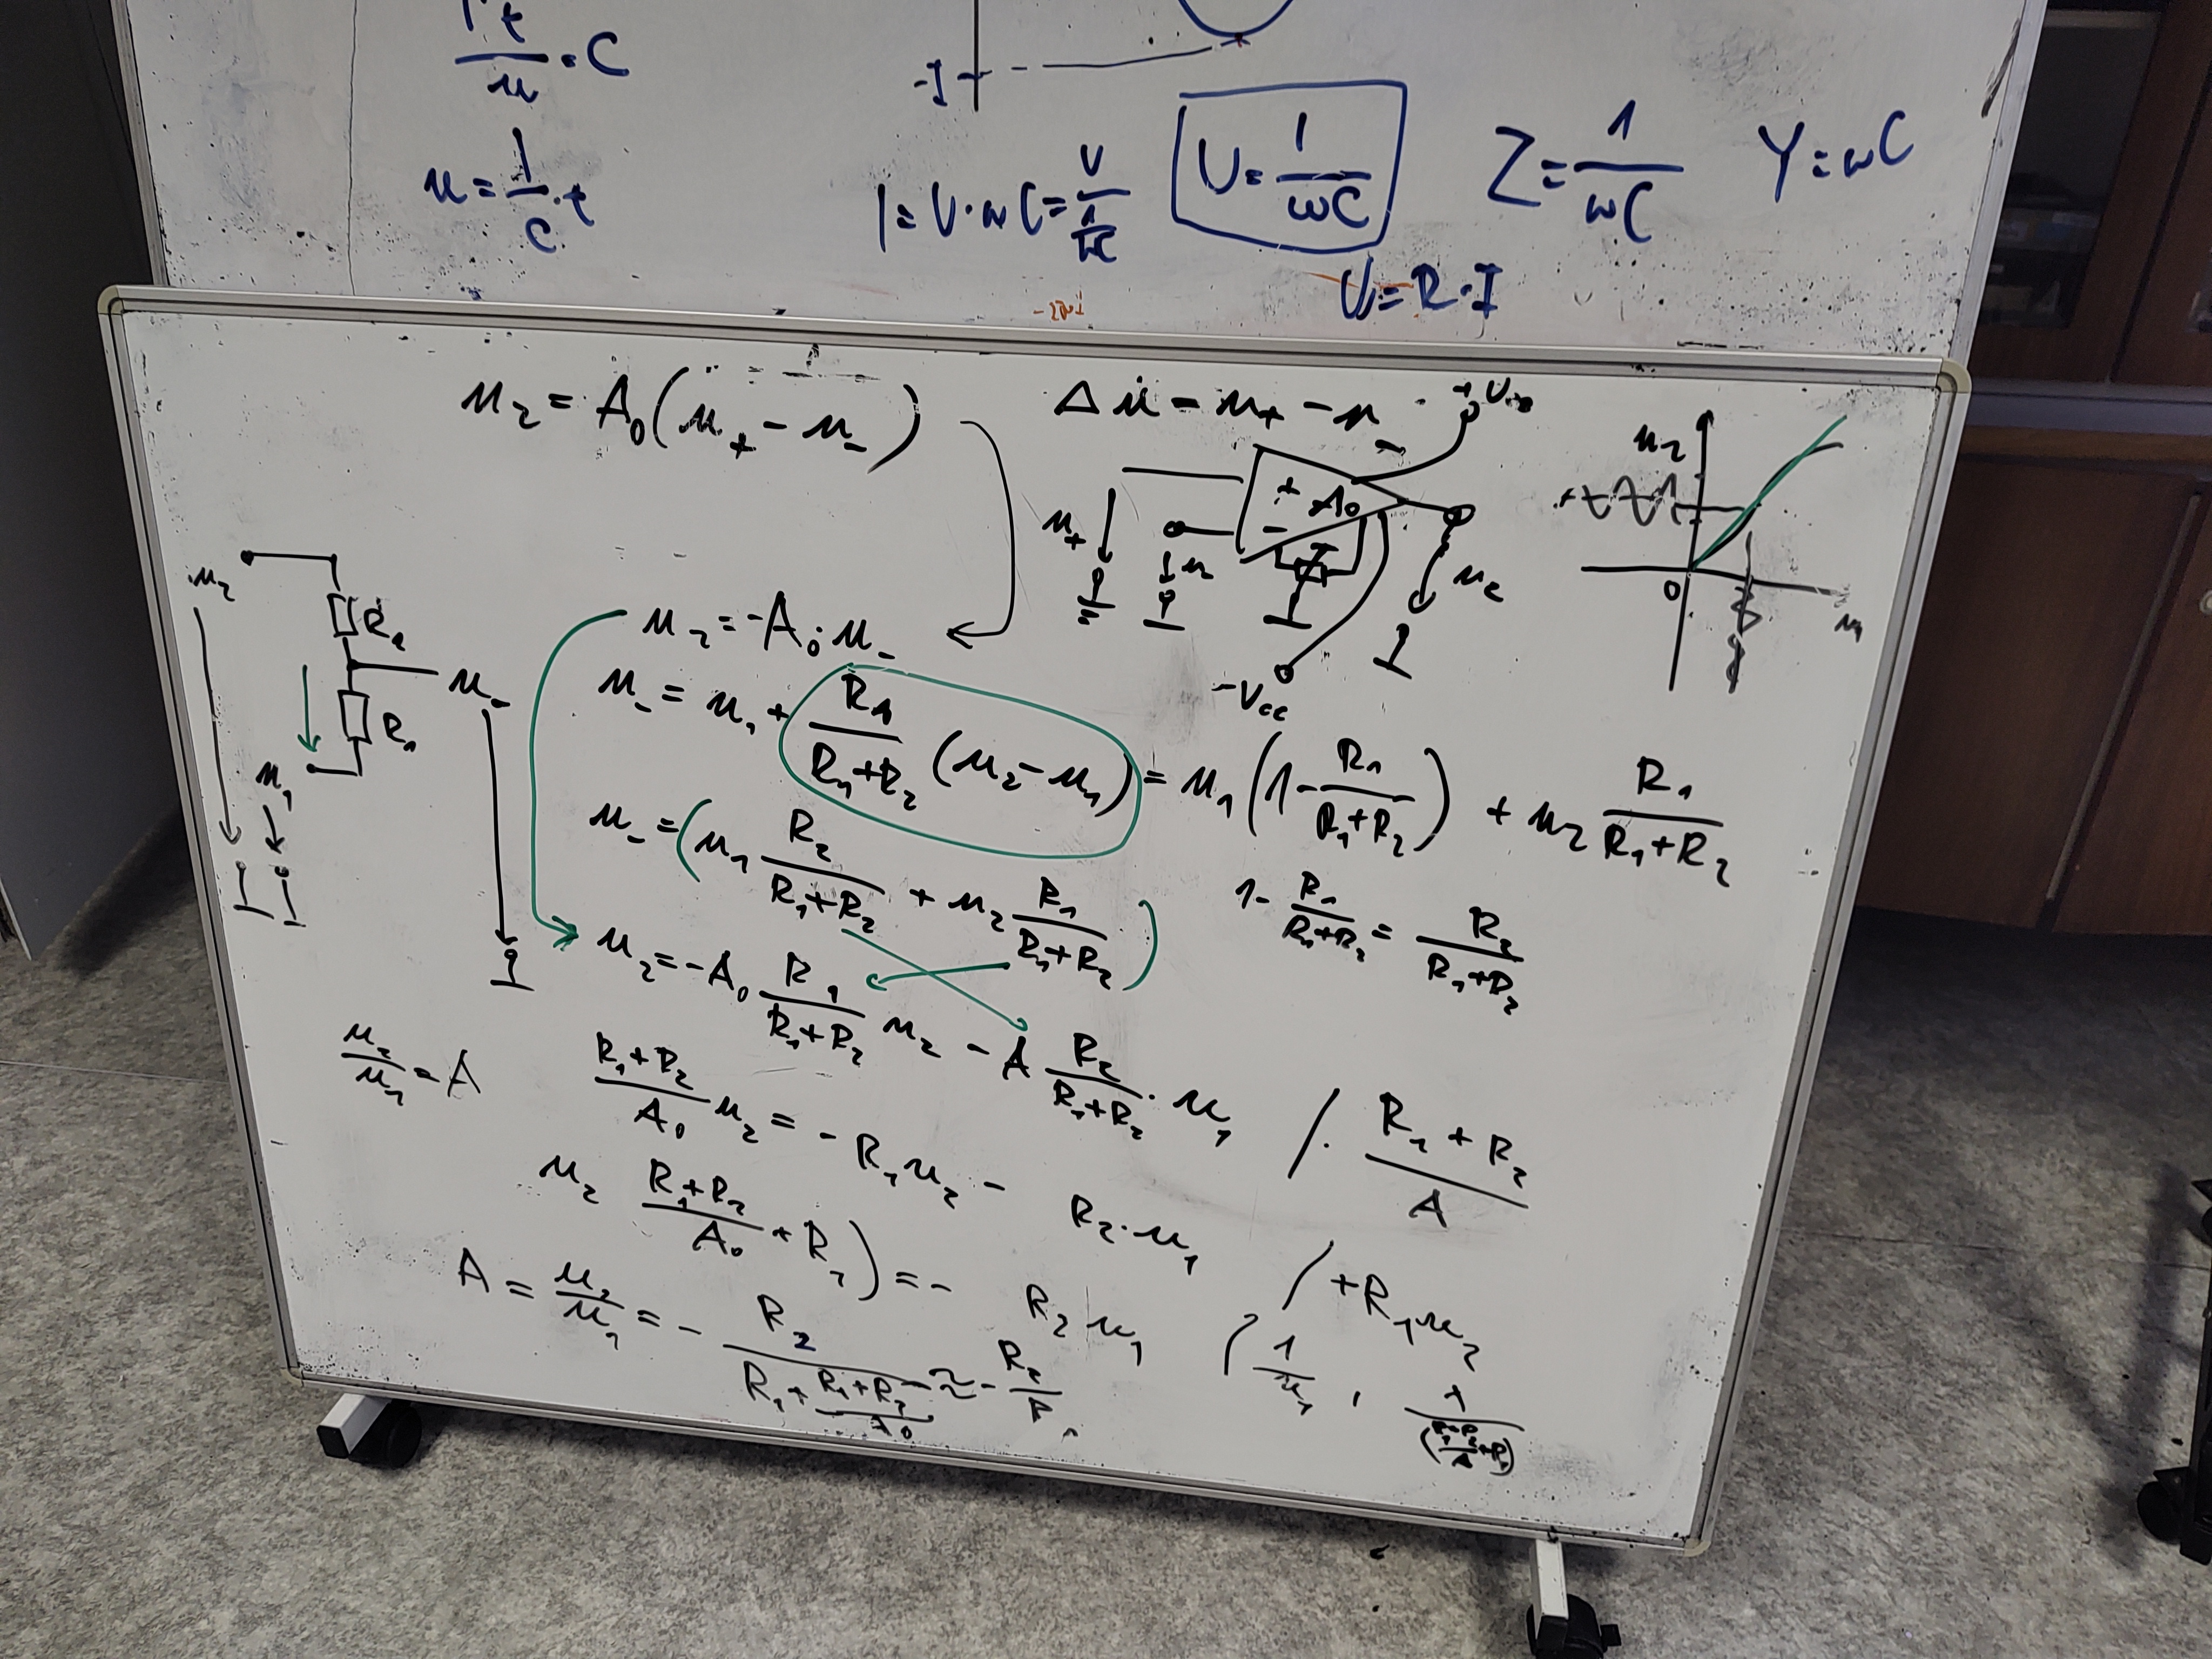 t/u · C
u = 1/C · t
-I
I = U·ωC = U/(1/ωC)
U = 1/ωC
Z = 1/ωC
Y = ωC
U = R·I
u₂ = A₀(u₊ - u₋)
Δu - u₊ - u₋
u₊
+
-
A₀
u₂
-Vcc
u₂
0
u₁
u₂
R₂
u₋
R₁
u₁
u₂ = -A₀·u₋
u₋ = u₁ + R₁/(R₁+R₂) (u₂-u₁) = u₁(1 - R₁/(R₁+R₂)) + u₂ R₁/(R₁+R₂)
u₋ = (u₁ R₂/(R₁+R₂) + u₂ R₁/(R₁+R₂))
1 - R₁/(R₁+R₂) = R₂/(R₁+R₂)
u₂ = -A₀ R₁/(R₁+R₂) u₂ - A R₂/(R₁+R₂) · u₁ /· (R₁+R₂)/A
u₂/u₁ = A
(R₁+R₂)/A₀ u₂ = - R₁u₂ - R₂·u₁ / +R₁u₂
u₂ (R₁+R₂)/A₀ + R₁) = - R₂ u₁ ( 1/u₁ , 1/((R₁+R₂)/A+R₁)
A = u₂/u₁ = - R₂/(R₁ + (R₁+R₂)/A₀) ≈ - R₂/R₁